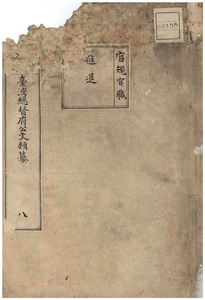 官規官職
進退
臺灣總督府公文類纂
八